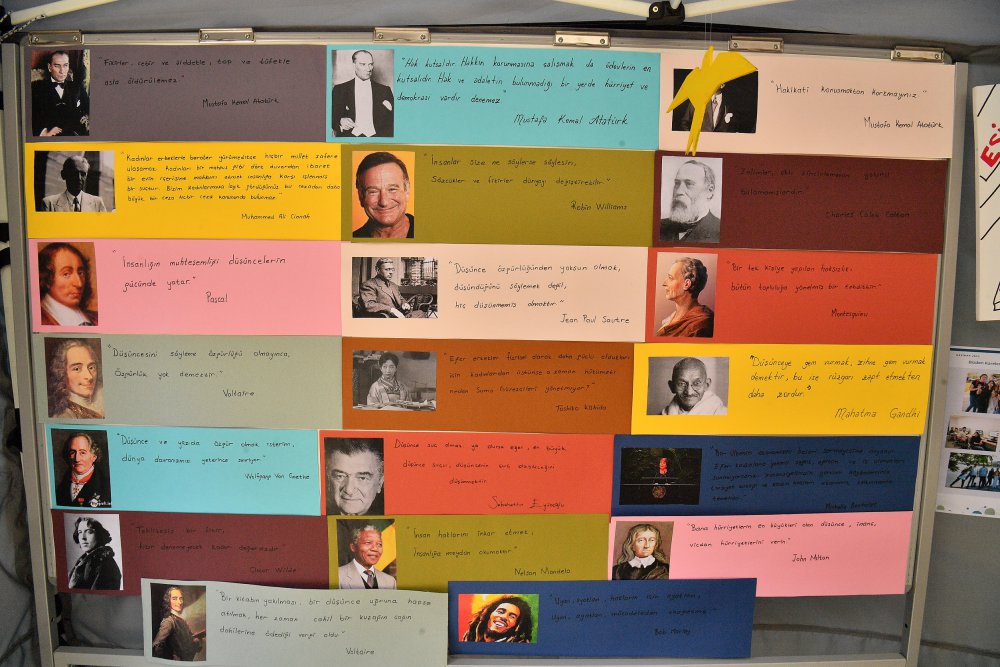 "Fikirler, cebir ve şiddetle, top ve tüfekle
asla öldürülemez."
Mustafa Kemal Atatürk
"Hak kutsaldır. Hakkın korunmasına çalışmak da ödevlerin en
kutsalıdır. Hak ve adaletin bulunmadığı bir yerde hürriyet ve
demokrasi vardır denemez"
Mustafa Kemal Atatürk
"Hakikati konuşmaktan korkmayınız"
Mustafa Kemal Atatürk
"Kadınlar erkeklerle beraber yürümedikçe hiçbir millet zafere
ulaşamaz. Kadınları bir mahpus gibi dört duvardan ibaret
bir evin içerisine mahkum etmek insanlığa karşı işlenmiş
bir suçtur. Bizim kadınlarımıza layık gördüğümüz bu cezadan daha
büyük bir ceza hiçbir ceza kanununda bulunmaz."
Muhammed Ali Cinnah
"İnsanlar size ne söylerse söylesin,
Sözcükler ve fikirler dünyayı değiştirebilir."
Robin Williams
Zalimler, zincirlemeye
Charles Caleb Colton
"İnsanlığın muhteşemliği düşüncelerin
gücünde yatar."
Pascal
"Düşünce özgürlüğünden yoksun olmak,
düşündüğünü söylemek değil,
hiç düşünmemiş olmaktır."
Jean Paul Sautre
"Bir tek kişiye yapılan haksızlık,
bütün topluluğa yönelmiş bir tehdittir."
Montesquieu
"Düşüncesini söyleme özgürlüğü olmayınca,
Özgürlük yok demektir."
Voltaire
"Eğer erkekler fiziksel olarak daha güçlü oldukları
için kadınlardan üstünse o zaman hükümeti
neden Sumo Güreşçileri yönetmiyor?"
Toshiko Kishida
"Düşünceye gem vurmak, zihne gem vurmak
demektir, bu ise rüzgarı zapt etmekten
daha zordur."
Mahatma Gandhi
"Düşünce ve yazıda özgür olmak isterim,
dünya davranışımızı yeterince sınırlıyor"
Wolfgang Von Goethe
Düşünce suç olmaz ya olursa eğer, en büyük
düşünce suçu, düşüncenin suç olabileceğini
düşünmektir.
Sabahattin Eyüboğlu
"Tehlikesiz bir fikir,
fikir denemeyecek kadar değersizdir.
Oscar Wilde
"İnsan haklarını inkar etmek,
İnsanlığa meydan okumaktır."
Nelson Mandela
"Bana hürriyetlerin en büyükleri olan düşünce, inanç,
vicdan hürriyetlerini verin."
John Milton
"Bir kitabın yakılması, bir düşünce uğruna hapse
atılmak, her zaman cahil bir kuşağın çağın
dahilerine ödediği vergi oldu."
Voltaire
"Uyan, ayaklan, hakların için ayaklan,
Uyan, ayaklan, mücadeleden vazgeçme"
Bob Marley